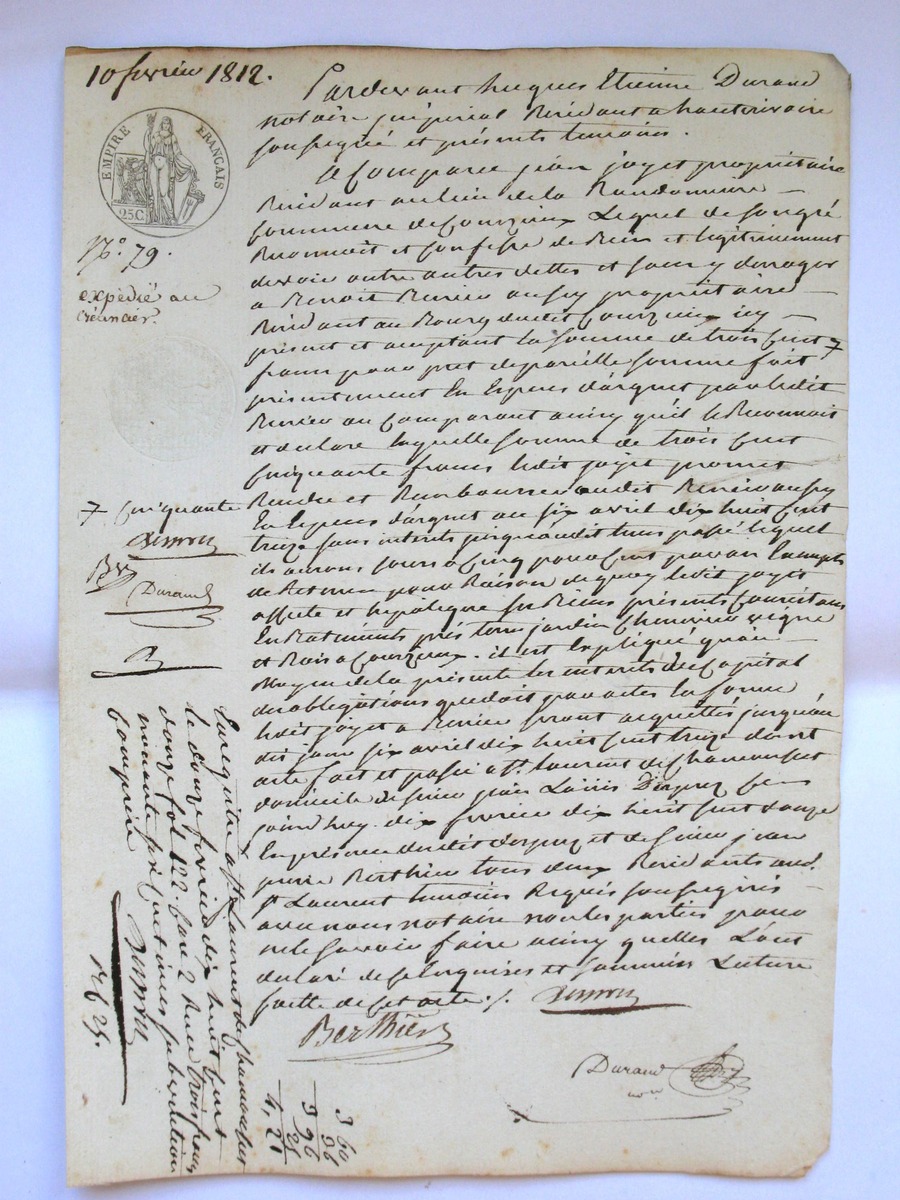 10 fevrier 1812.
EMPIRE FRANÇAIS
25C.
N°. 79.
expédié au
créancier.
Pardevant hugues Etienne Durand
notaire impérial Residant a hauterivoire
soussigné et présents temoins.
a Comparu jean joyet propriétaire
Residant au lieu de la
Commune de Courzieux Lequel de son gré
Reconnoit et Confesse de Rien et légitimement
devoir outre autres dettes et sans y deroger
a Benoit Rivier aussy propriétaire
Residant au Bourg dudit Courzieux icy
présent et acceptant la somme de trois Cent 7
francs pour pret de pareille somme fait
présentement En Especes d'argent par ledit
Rivier au Comparant ainsy qu'il le Reconnoit
et declare laquelle somme de trois Cent
Cinquante francs ledit joyet promet
Rendre et Rembourser audit Rivier aussy
En Especes d'argent au six avril dix huit Cent
treize sans interets jusqu'audit tems passé lequel
ils auront Cours a Cinq pour Cent par an Exempts
de Retenue pour Raison de quoy ledit joyet
affecte et hypoteque ses Biens présents Consistans
En Batiments prés terres jardin Chenevier vigne
et Bois a Courzieux. il est Expliqué qu'au
Moyen de la présente les interets du Capital
des obligations que doit par actes la somme
ledit joyet a Rivier seront acquittés jusqu'au
dit jour six avril dix huit cent treize dont
acte fait et passé a St. Laurent de Chamousset
domicile de sieur jean Louis
jourd'huy dix fevrier dix huit Cent douze
En présence dudit et de sieur jean
pierre Berthier tous deux Residants aud.
St Laurent temoins Requis soussignés
avec nous notaire non les parties pour
ne le savoir faire ainsy quelles L'ont
declaré de ce Enquises et sommées Lecture
faite de cet acte./.
Berthier
Durand
not
7 Cinquante
Br
Durand
B
Enregistré a St. Laurent de Chamousset
le douze fevrier dix huit Cent
douze fol. 122 Case 2 Recu trois francs
nonante six Centimes subvention
Comprise
1 f 6 25.
3 60
36
3 96
25
4,21